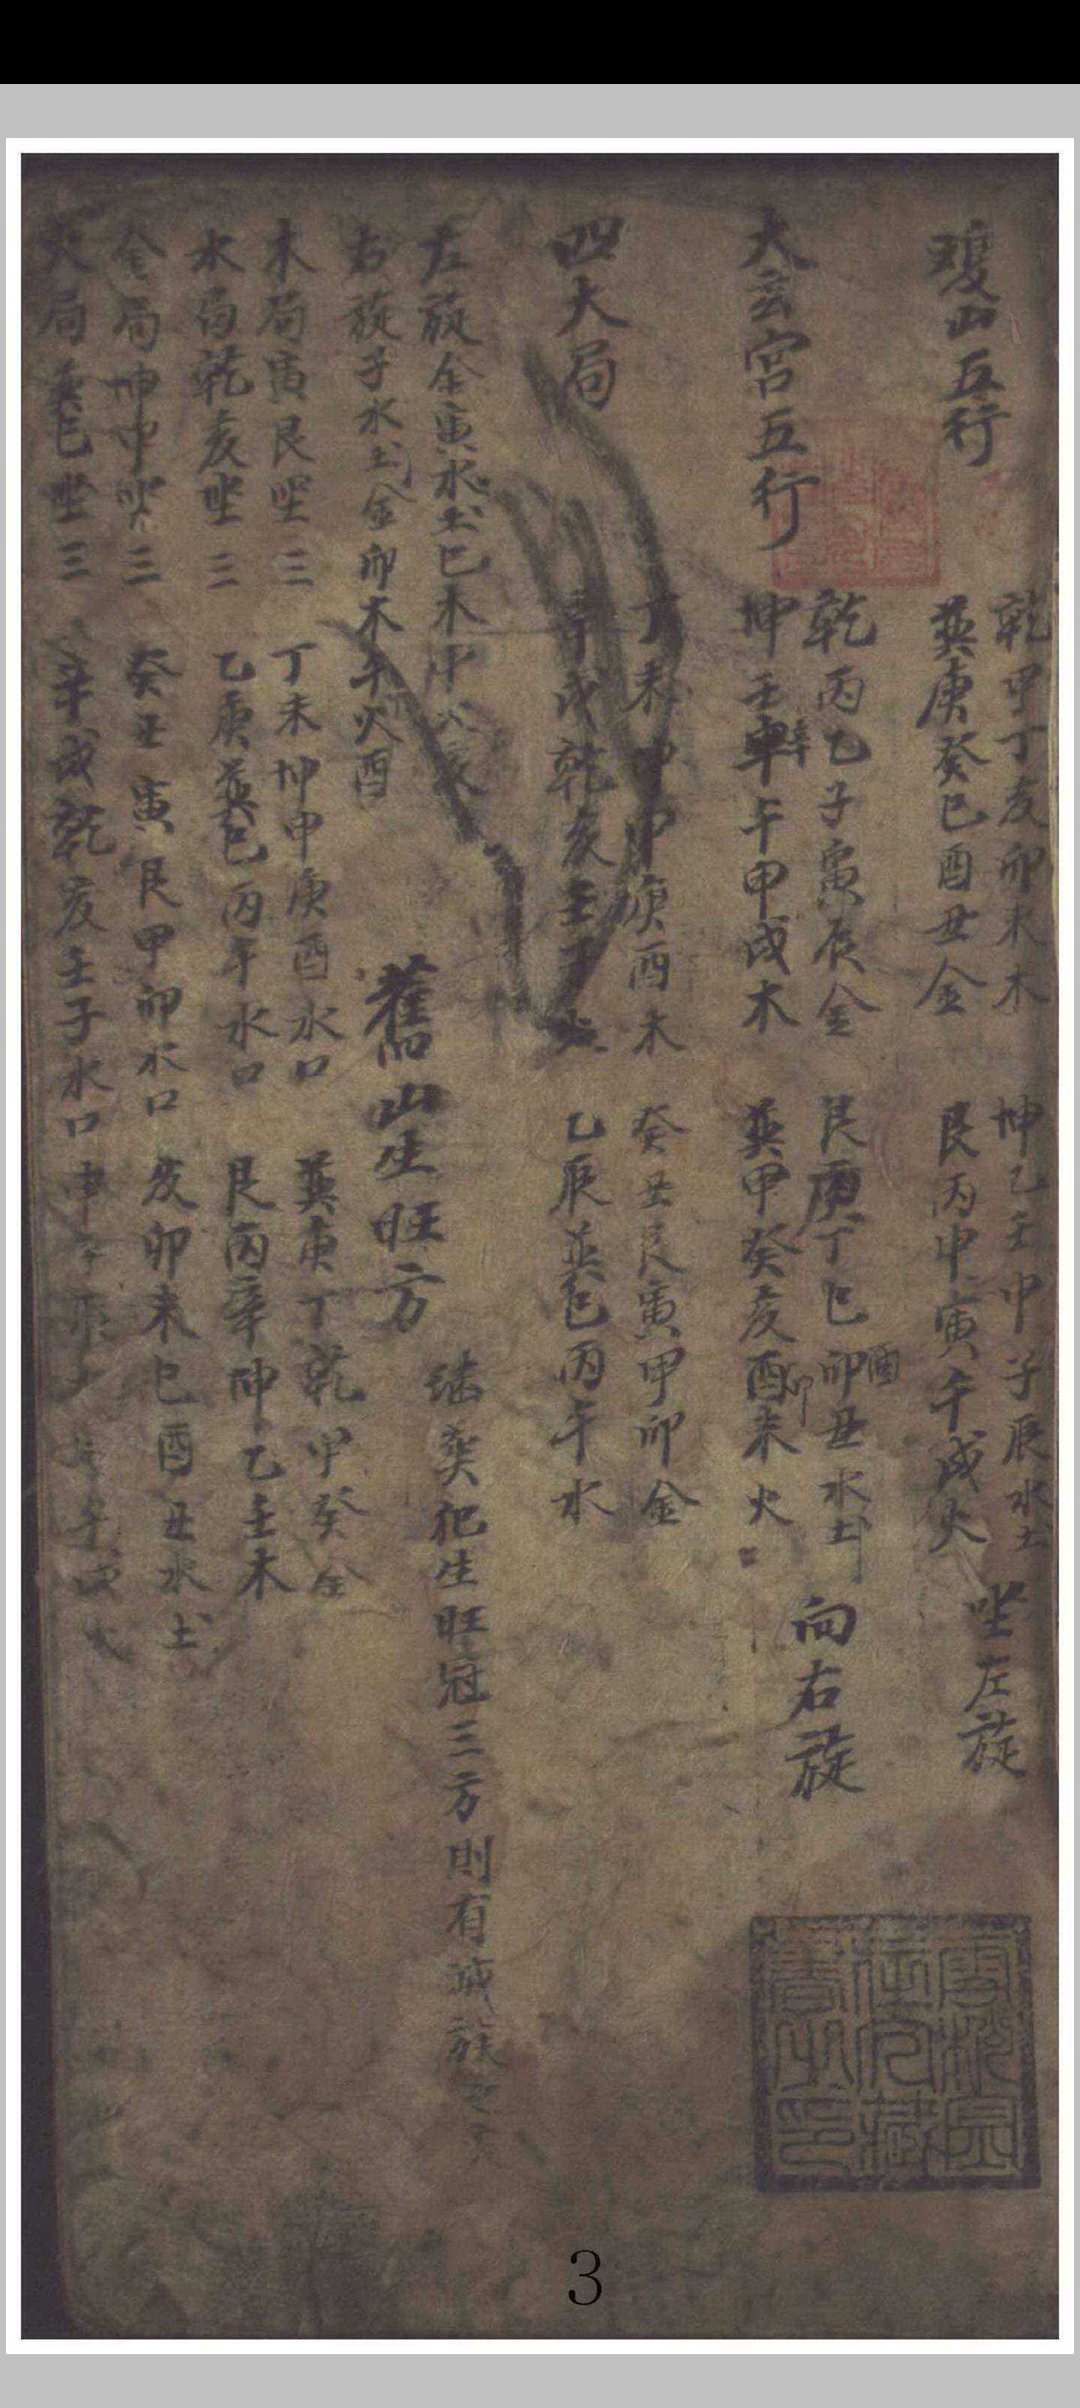 雙山五行
乾甲丁亥卯未木
坤乙壬申子辰水土
坐左旋
巽庚癸巳酉丑金
艮丙辛寅午戌火
大玄宮五行
乾丙乙子寅辰金
艮庚丁巳卯丑水土
酉
向右旋
坤壬辛午甲戌木
巽甲癸亥酉未火
卯
四大局
丁未坤申庚酉木
癸丑艮寅甲卯金
辛戌乾亥壬子火
乙辰巽巳丙午水
左旋金寅水土巳木申火亥
継葬犯生旺冠三方則有滅族之
右旋子水土金卯木午火酉
舊山生旺方
木局寅艮坐三
丁未坤申庚酉水口
巽庚丁乾甲癸金
水局乾亥坐三
乙庚巽巳丙午水口
艮丙辛坤乙壬木
金局坤申坐三
癸丑寅艮甲卯水口
亥卯未巳酉丑水土
火局巽巳坐三
辛戌乾亥壬子水口
申子辰
午戌火
3